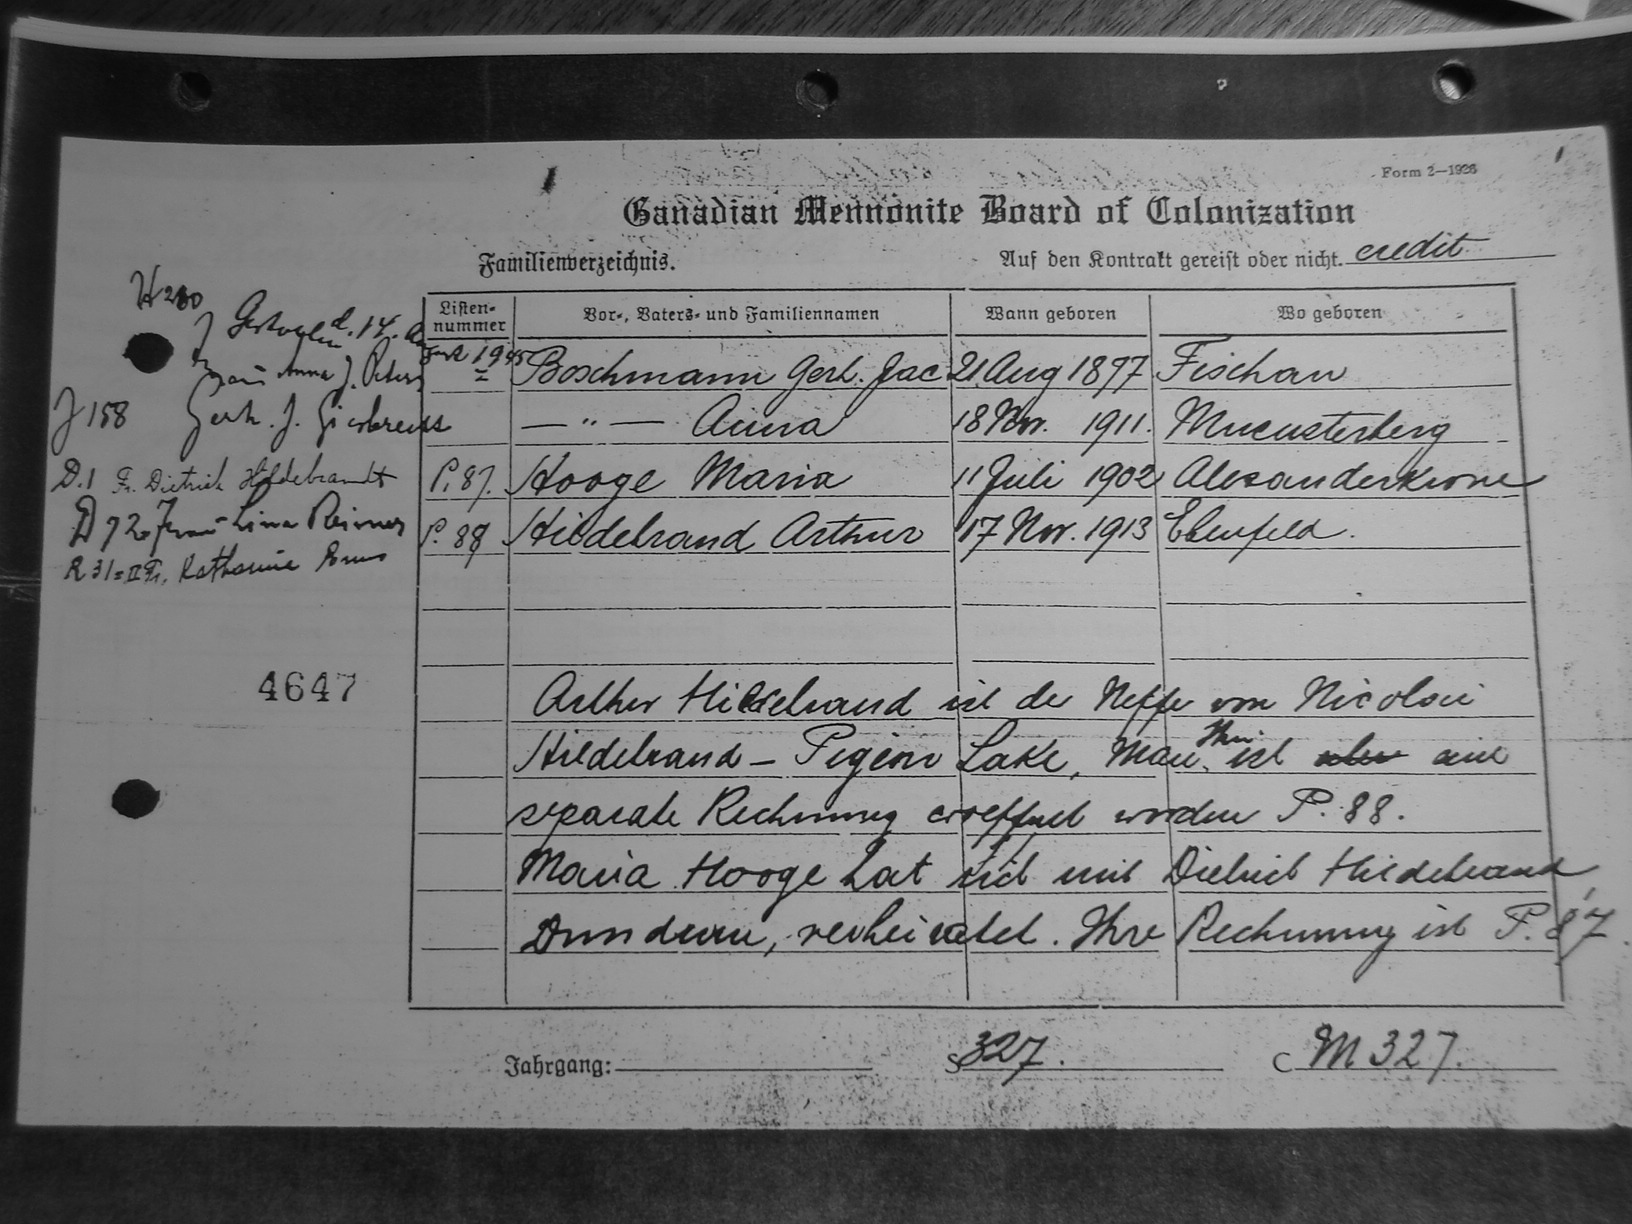 Form 2—1926
Canadian Mennonite Board of Colonization
Familienverzeichnis.
Auf den Kontrakt gereist oder nicht. credit
Listen-nummer
Vor-, Vaters- und Familiennamen
Wann geboren
Wo geboren
H 280
d. 14.
1945
Boschmann Gerh. Jac 21 Aug 1897 Fischau
Frau Anna J. Peters
— " — Anna 18 Nov. 1911. Muensterberg
J 158 Gerh. J. Giesbrecht
P. 87. Hooge Maria 11 Juli 1902 Alexanderkrone
D.1 Fr. Dietrich Hildebrandt
P. 88 Hildebrand Arthur 17 Nov. 1913 Ebenfeld.
D 72 Frau Lina Reimer
R 31 = II Fr. Katharina Enns
4647
Arthur Hildebrand ist der Neffe von Nicolai
Hildebrand – Pigeon Lake, Man. Ihm ist eine
separate Rechnung eroeffnet worden P. 88.
Maria Hooge hat sich mit Dietrich Hildebrand,
Dundurn, verheiratet. Ihre Rechnung ist P. 87.
Jahrgang:
S 327.
C M 327.